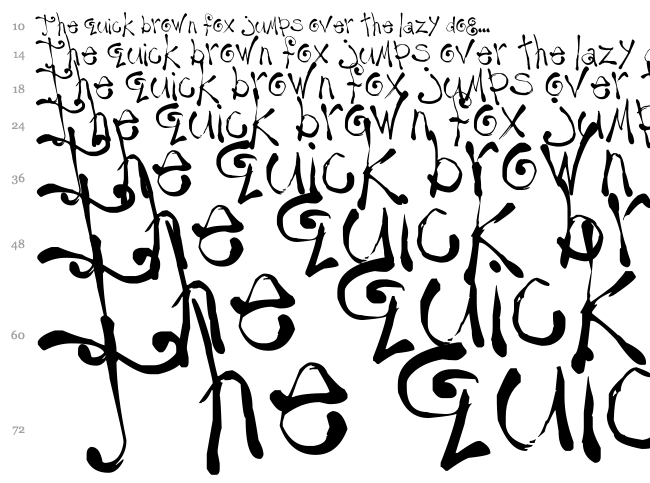 10 The quick brown fox jumps over the lazy dog...
14 The quick brown fox jumps over the lazy
18 The quick brown fox jumps over
24 The quick brown fox jump
36 The quick brown
48 The quick br
60 The quick
72 The quic